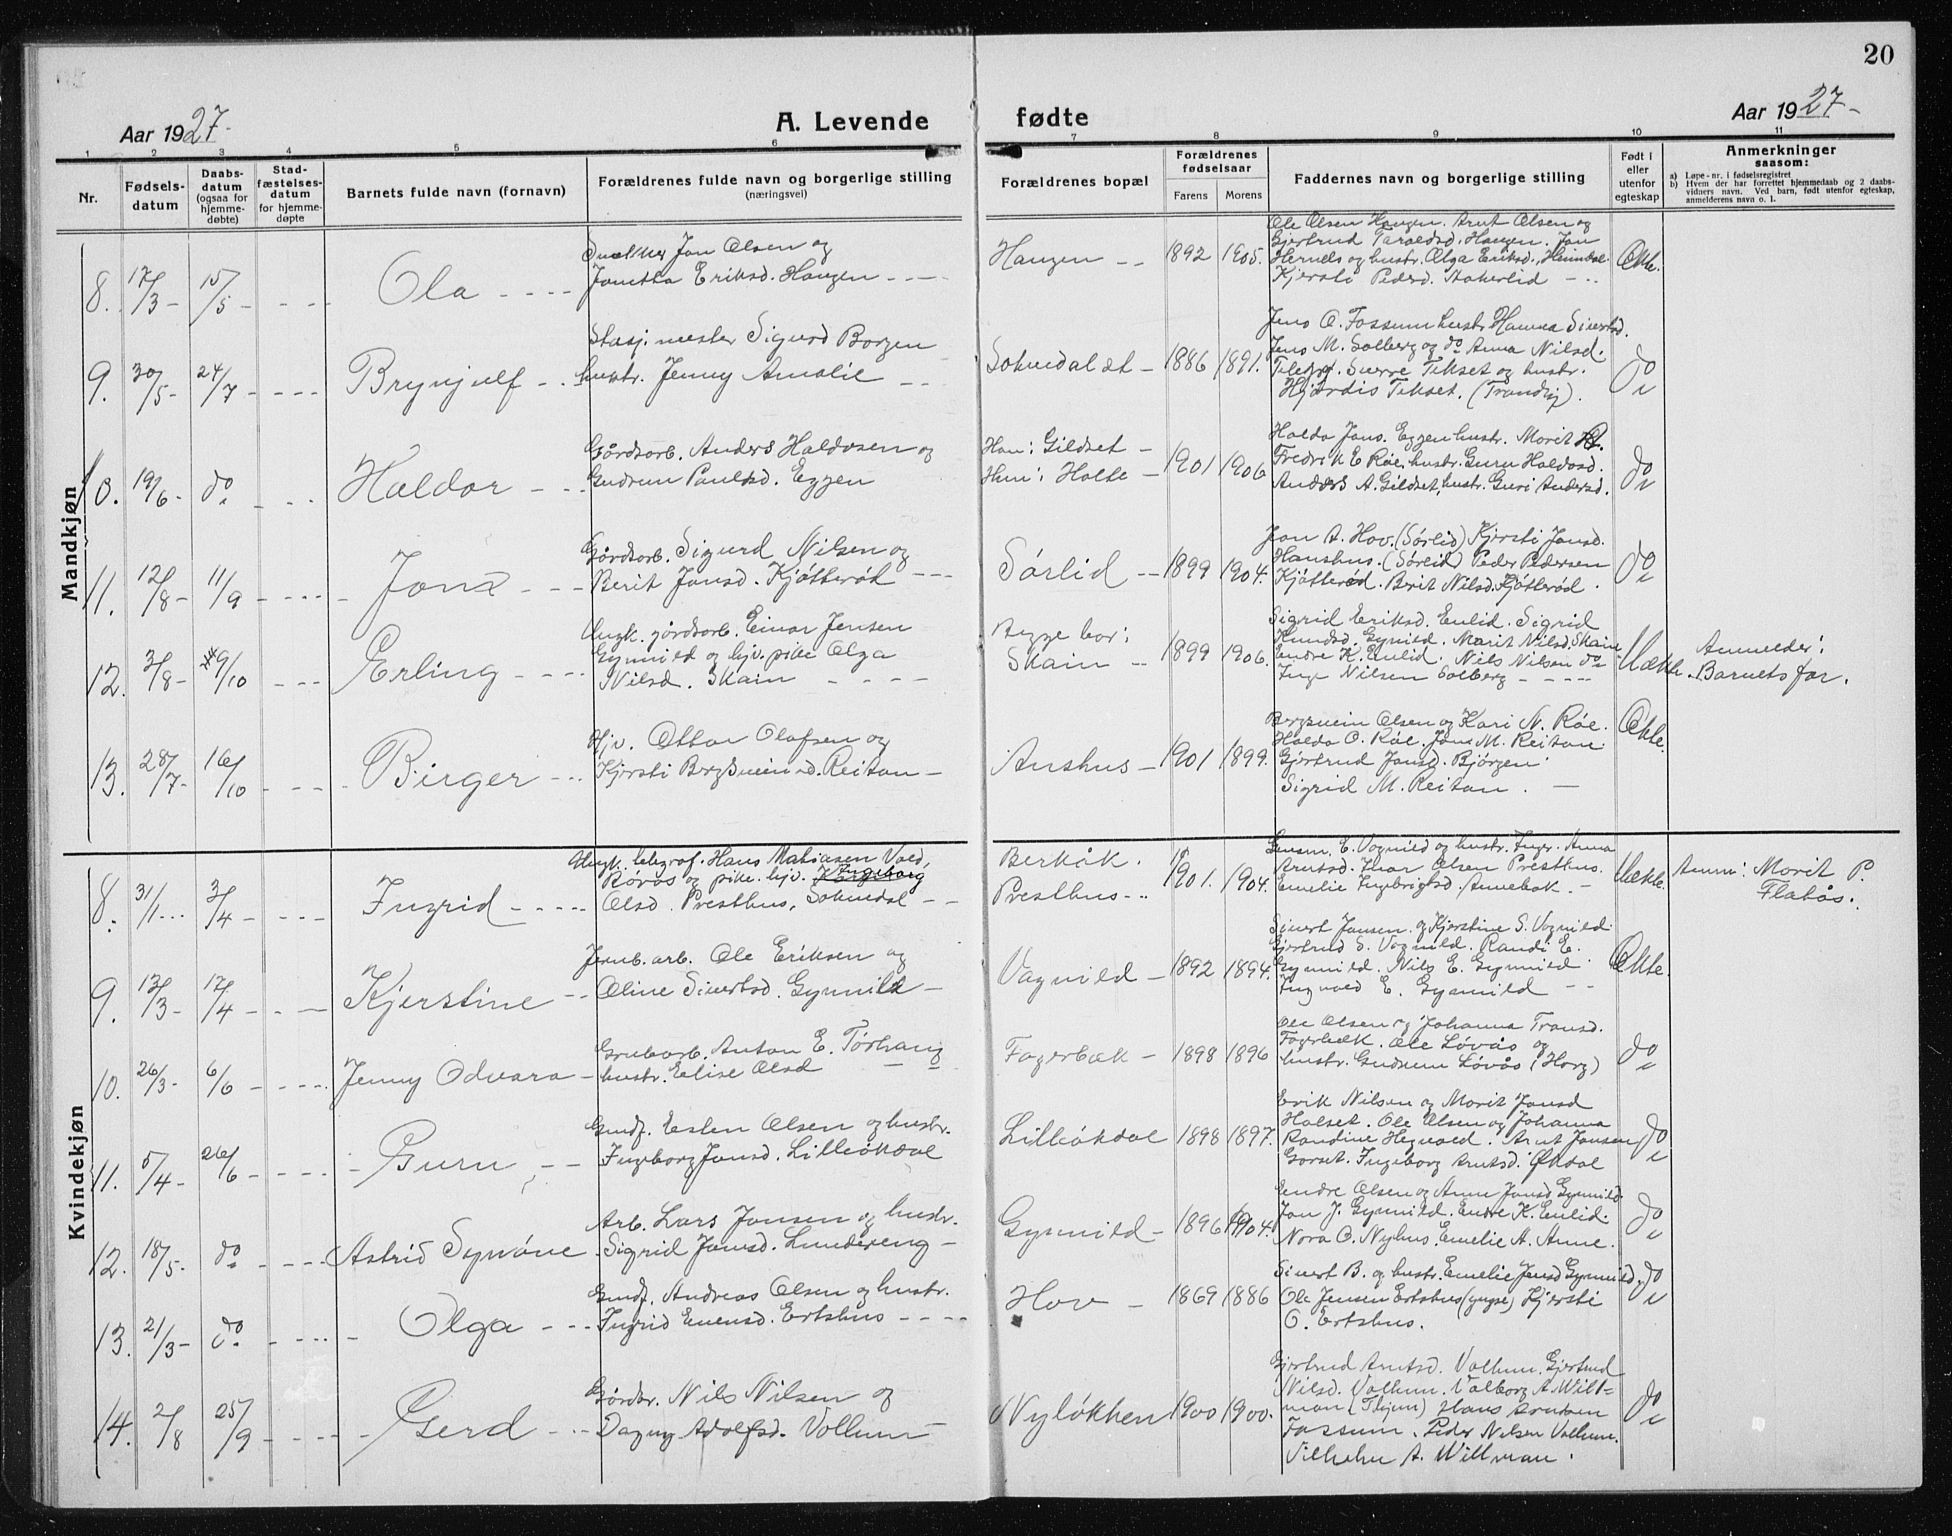 20
Aar 1927-
A. Levende fødte
Aar 1927-
1 2 3 4 5 6 7 8 9 10 11
Nr.
Fødsels-
datum
Daabs-
datum
(ogsaa for
hjemme-
døbte)
Stad-
fæstelses-
datum
for hjemme-
døpte
Barnets fulde navn (fornavn)
Forældrenes fulde navn og borgerlige stilling
(næringsvei)
Forældrenes bopæl
Forældrenes
fødselsaar
Farens Morens
Faddernes navn og borgerlige stilling
Født i
eller
utenfor
egteskap
Anmerkninger
saasom:
a) Løpe-nr. i fødselsregistret
b) Hvem der har forrettet hjemmedaab og 2 daabs-
vidners navn. Ved barn, født utenfor egteskap,
anmelderens navn o. l.
Mandkjøn
8. 17/3- 15/5- Ola
Jon Olsen og
Eriksd. Haugen
Haugen 1892 1905.
Ole Olsen Haugen. Arnt Olsen og
Gjertrud Taraldsd. Haugen. Jon
og hustr. Olga Eriksd. Heimdal
Kjersti Pedersd.
Ekte.
9. 30/5- 24/7 Brynjulf
Stasj. mester Sigurd Borgen
hustr. Jenny Amalie
Soknedal st- 1886 1891.
Jens O. Fossum hustr Hanna Sivertsd.
Jens M. Solberg og do Anna Nilsd.
Telegrf. Sverre Tekset og hustr.
Hjørdis Tekset. (Trondhj).
do
10. 19/6- do Haldor
Gårdsarb. Anders Haldosen og
Gudrun Paulsd. Eggen
Han: Gildset -
Hun: Holte - 1901 1906
Haldo Jons. Eggen hustr. Morit
Fredrik E Røe, hustr. Guru Haldosd.
Anders A. Gildset, hustr. Guri Andersd.
do
11. 12/8- 11/9 Jon
Gårdsarb. Sigurd Nilsen og
Berit Jonsd. Kjøtterød
Sørlid 1899 1904.
Jon A. Hov. (Sørlid) Kjersti Jonsd.
Hanshus. (Sørlid) Peder Pedersen
Kjøtterød. Berit Nilsd. Kjøtterød.
do
12. 3/8- 9/10 Erling
Ungk. gårdsarb. Einar Jensen
Gynnild og hjv. pike Olga
Nilsd. Skain
Begge bor:
Skain 1899 1906.
Sigrid Eriksd. Enlid. Sigrid
Knudsd. Gynnild. Marit Nilsd. Skain
Endre K. Enlid. Nils Nilsen do
Inge Nilsen Solberg
Uekte.
Anmelder:
Barnets far.
13. 28/7- 16/10 Birger
Hjv. Ottar Olafsen og
Kjersti Bergsveinsd. Reitan
Anshus 1901 1899.
Bergsvein Olsen og Kari N. Røe.
Haldo O. Røe. Jons M. Reitan.
Gjertrud Jonsd. Bjørgen.
Sigrid M. Reitan.
Ekte.
Kvindekjøn
8. 31/1... 3/4 Ingrid
Ungk. telegraf. Hans Matiasen Vold,
Røros og pike. hjv. Ingeborg
Olsd. Presthus, Soknedal
Berkåk.
Presthus 1901. 1904.
E. Vognild og hustr. Ingr. Anna
Arntsd. Ivar Olsen Presthus.
Emelie Ingebrigtsd.
Uekte.
Anm: Morit P.
Flatås.
9. 13/3- 17/4 Kjerstine
Jernb. arb. Ole Eriksen og
Oline Sivertsd. Gynnild
Vagnild 1892 1894.
Sivert Jonsen og Kjerstine S. Vognild.
Gjertrud S. Vognild. Randi E.
Gynnild. Nils E. Gynnild.
Ingvald E. Gynnild
Ekte.
10. 26/3- 6/6 Jenny Odvara
Grubarb. Anton E. Tørhaug
hustr. Elise Olsd
Fagerbæk 1898 1896
Ole Olsen og Johanna Tronsd.
Fagerbæk. Ole Løvås og
hustr. Gudrun Løvås (Horg)
do
11. 5/4- 26/6 Guru
Gmdf. Esten Olsen og hustr.
Ingeborg Jonsd. Lilleøkdal
Lilleøkdal 1898 1897.
Erik Nilsen og Morit Jonsd
Halset. Ole Olsen og Johanna
Randine Hegvold. Arnt Jonsen
Gorset. Ingeborg Arntsd. Økdal
do
12. 18/5- do Astrid Synøve
Arb. Lars Jonsen og hustr.
Sigrid Jonsd. Lundereng
Gynnild 1896 1904.
Endre Olsen og Anne Jonsd Gynnild.
Jon J. Gynnild. Endre K. Enlid.
Nora O. Nyhus. Emelie A. Aune.
do
13. 21/3- do Olga
Gmdf. Andreas Olsen og hustr.
Ingrid Evensd. Ertshus
Hov 1869 1886
Sivert B. og hustr. Emelie Jensd Gynnild,
Ole Jensen Ertshus (yngre) Kjersti
O. Ertshus.
do
14. 2/8 25/9 Gerd
Gårdbr. Nils Nilsen og
Dagny Adolfsd. Vollum
Nyløkken 1900 1900.
Gjertrud Arntsd. Vollum. Gjertrud
Nilsd. Vollum. Valborg A. Will-
man Hans Arntsen
Fossum. Peder Nilsen Vollum.
Vilhelm A. Willman.
do